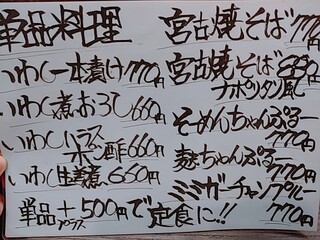 単品料理
いわし一本漬け770円
いわし煮おろし660円
いわしハラス ポン酢660円
いわし生姜煮660円
単品+500円で定食に!!
プラス
宮古焼そば770円
宮古焼そば880円
ナポリタン風
そーめんちゃんぷるー
770円
麩ちゃんぷるー
770円
ミミガーチャンプルー
770円